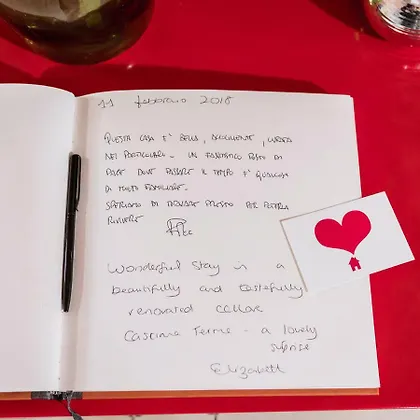 11 febbraio 2018
QUESTA CASA E' BELLA, ACCOGLIENTE, CURATA
NEI PARTICOLARI. UN FANTASTICO POSTO IN
DOVE PASSARE IL TEMPO E' QUALCOSA
DI MOLTO FAMILIARE.
SPERIAMO DI TORNARE PRESTO PER POTERLA
RIVIVERE
Wonderful stay in a
beautifully and tastefully
renovated cellar
Cascina Ferme - a lovely
suprise
Elizabeth